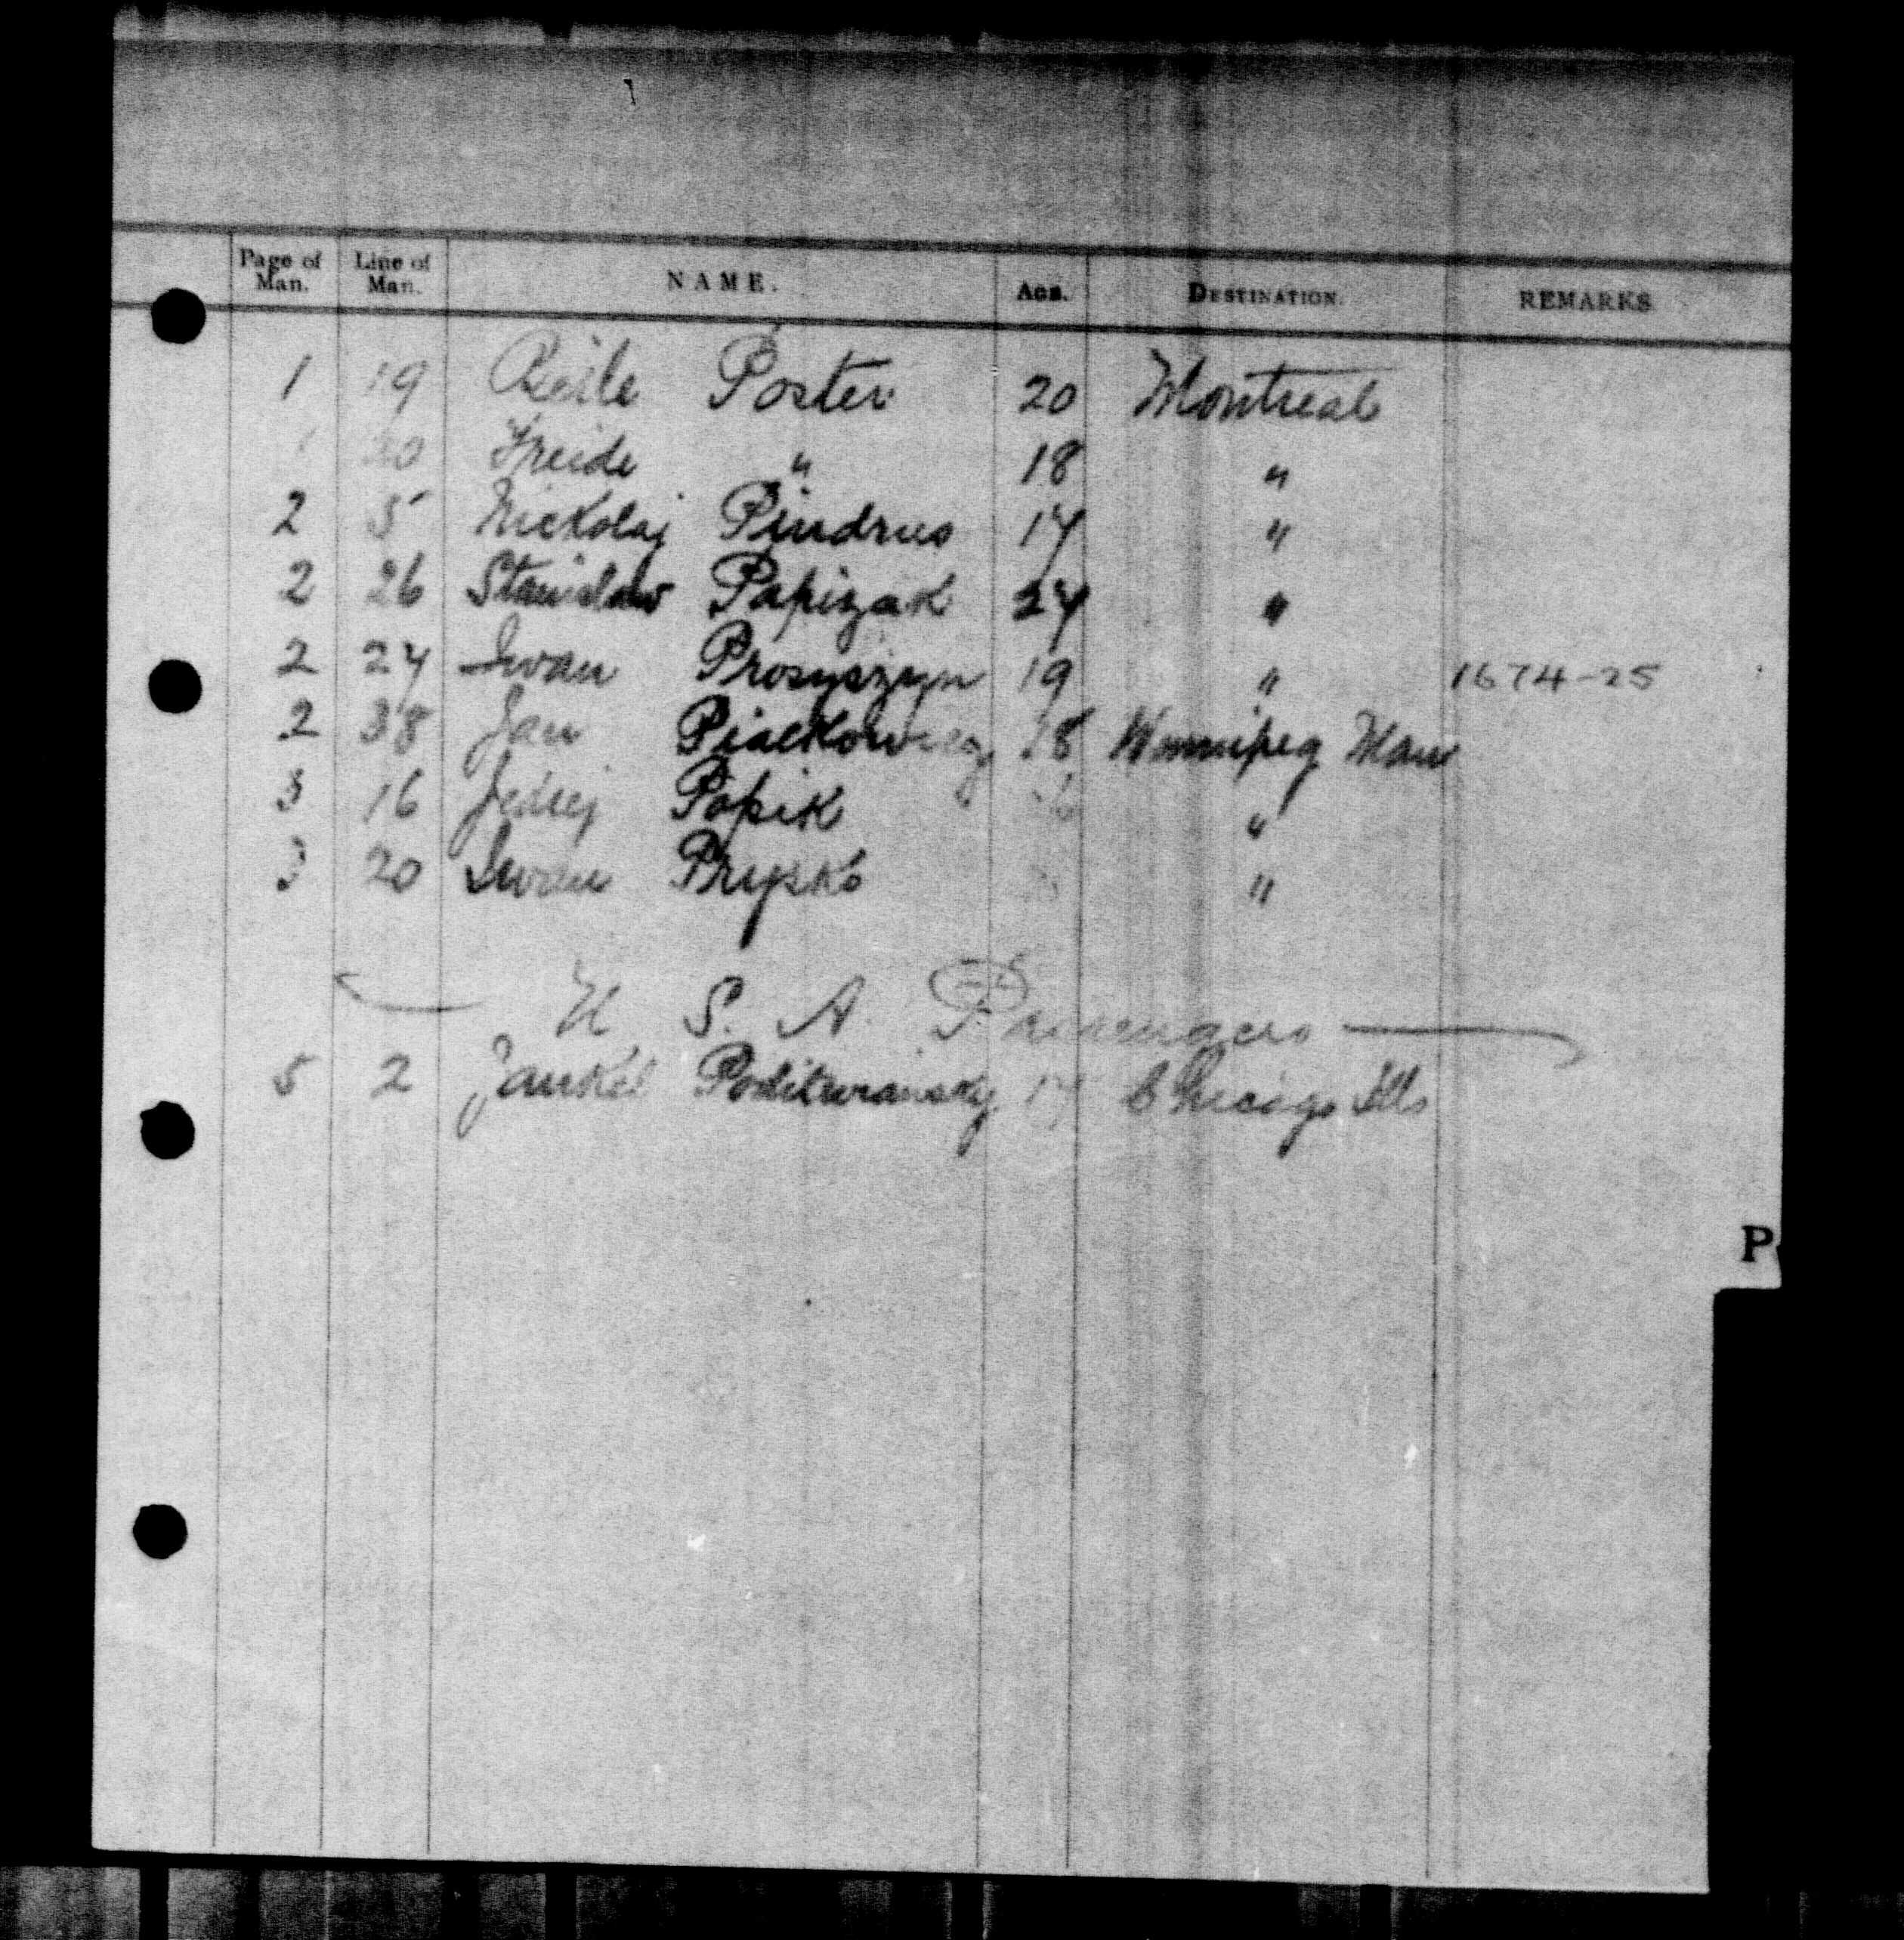 Page of Man. Line of Man. NAME. AGE. DESTINATION. REMARKS
1 19 Poster 20 Montreal
20 Freide " 18 "
2 5 Nickolaj Pindrus 17 "
2 26 Stanislaw Papizak 27 "
2 27 Iwan Prosyszyn 19 " 1674-25
2 38 Jan 18 Winnipeg Man
3 16 Popik "
3 20 Iwan Prysko "
U S. A. Passengers
5 2 Jankel 17 Chicago Ills
P